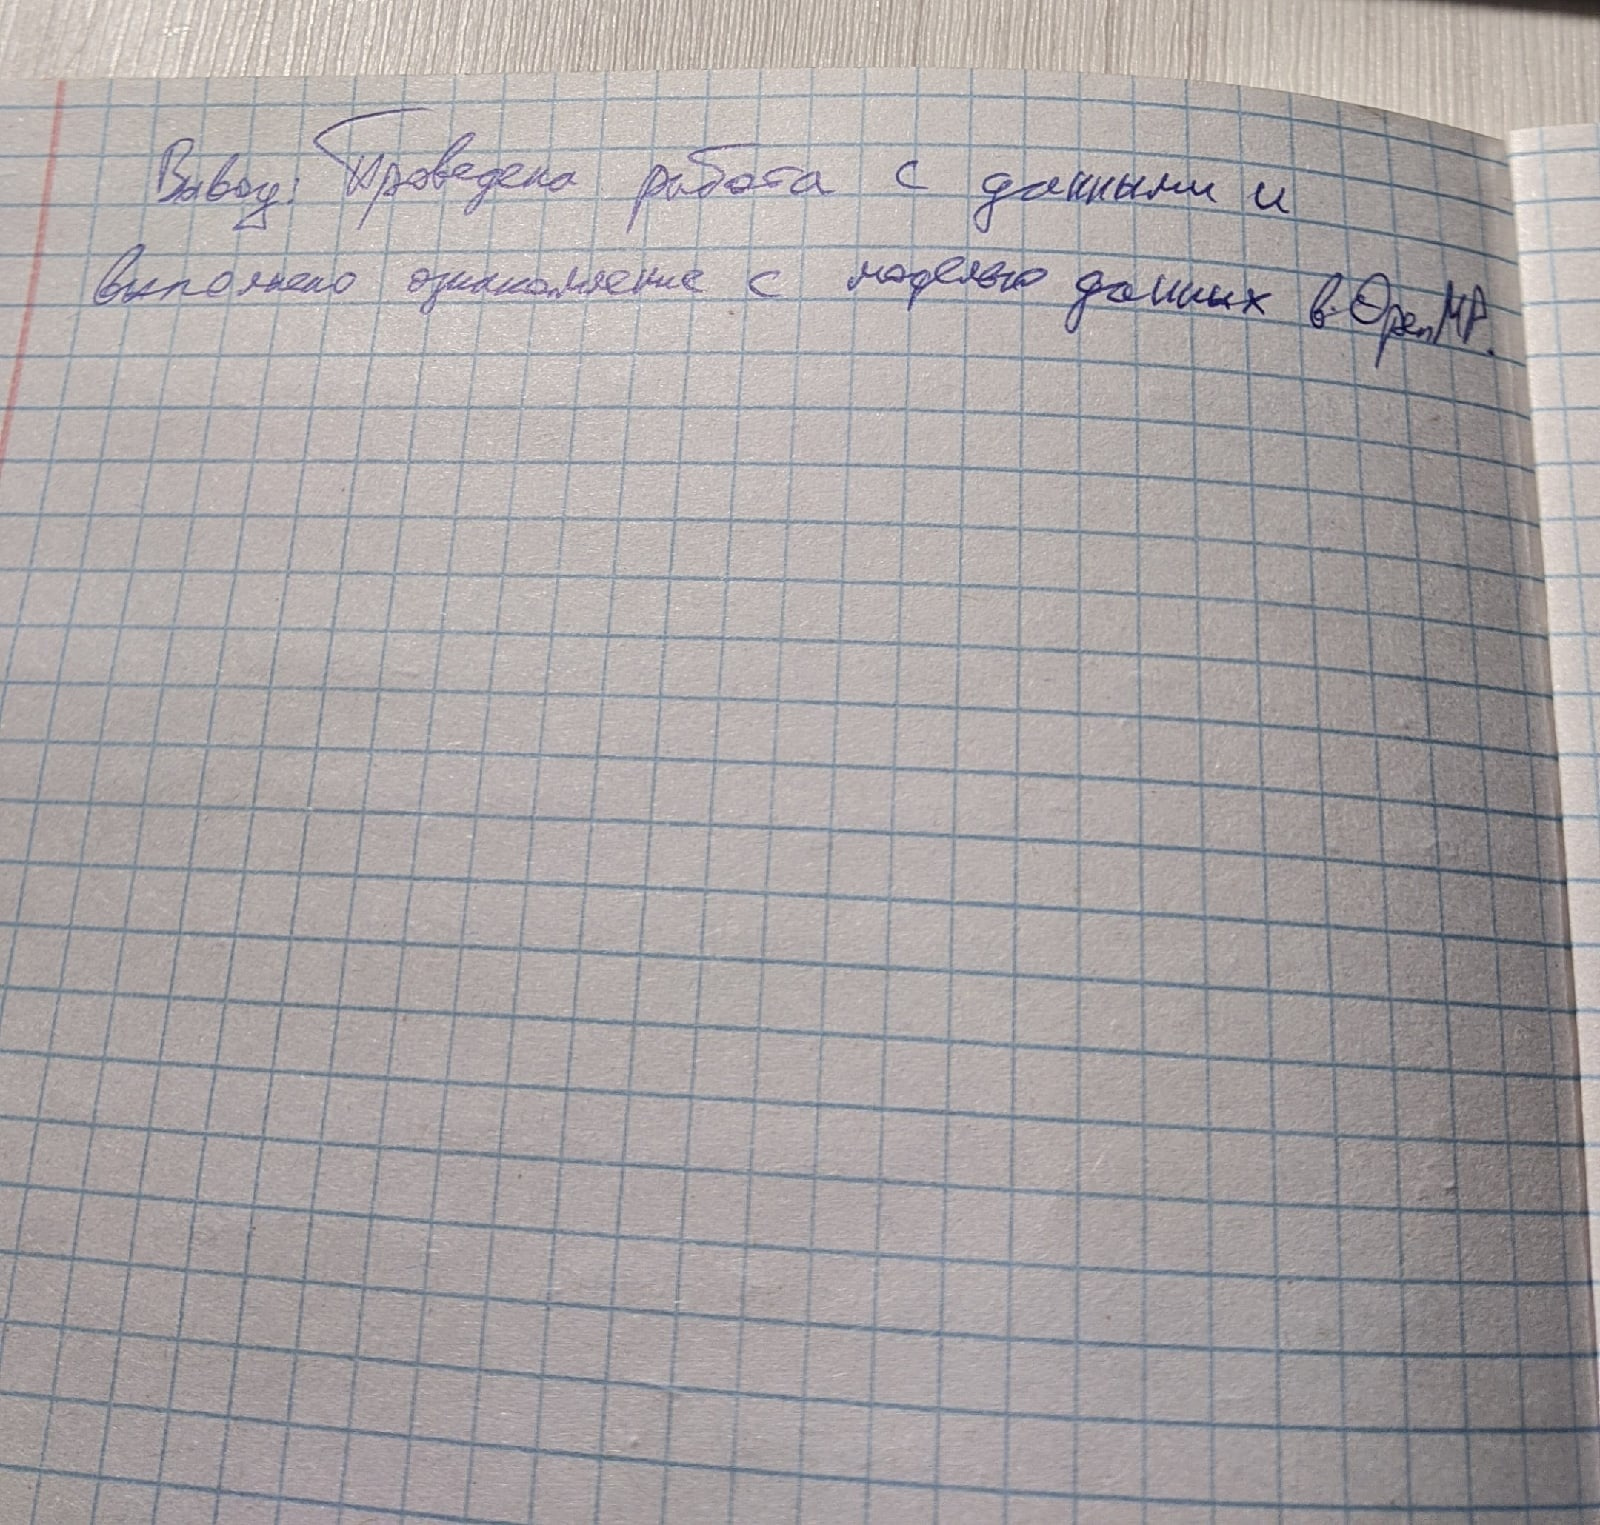 Вывод: Проведена работа с данными и
выполнено ознакомление с моделью данных в OpenMP.